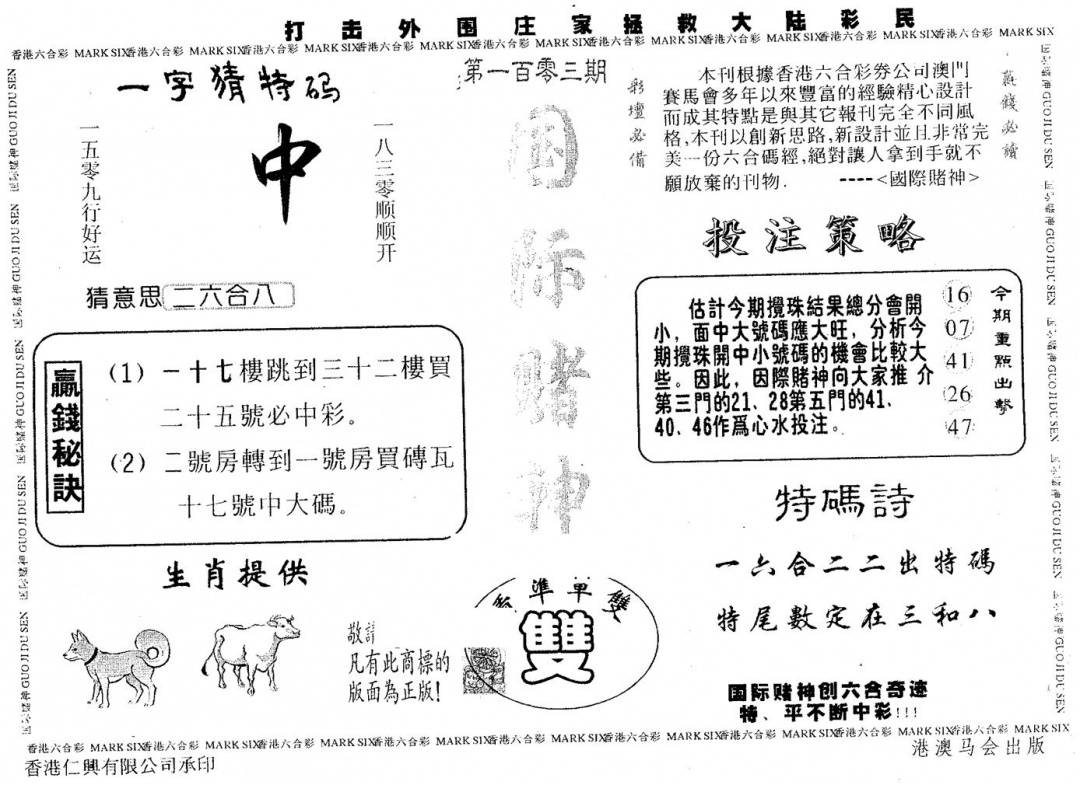 打击外围庄家拯救大陆彩民
香港六合彩 MARK SIX香港六合彩 MARK SIX香港六合彩 MARK SIX香港六合彩 MARK SIX香港六合彩 MARK SIX香港六合彩 MARK SIX香港六合彩 MARK SIX香港六合彩 MARK SIX香港六合彩 MARK SIX
一字猜特码
一五零九行好运
中
一八三零顺顺开
猜意思 二六合八
贏錢秘訣
(1) 一十七樓跳到三十二樓買
二十五號必中彩。
(2) 二號房轉到一號房買磚瓦
十七號中大碼。
生肖提供
敬請
凡有此商標的
版面為正版!
第一百零三期
国际赌神
準單雙
雙
彩壇必備
本刊根據香港六合彩券公司澳門
賽馬會多年以來豐富的經驗精心設計
而成其特點是與其它報刊完全不同風
格,本刊以創新思路,新設計並且非常完
美一份六合碼經,絕對讓人拿到手就不
願放棄的刊物. ----<國際賭神>
贏錢必讀
投注策略
估計今期攪珠結果總分會開
小，面中大號碼應大旺，分析今
期攪珠開中小號碼的機會比較大
些。因此，因際賭神向大家推 介
第三門的21、28第五門的41、
40、46作爲心水投注。
16
07
41
26
47
今期重點出擊
特碼詩
一六合二二出特碼
特尾數定在三和八
国际赌神创六合奇迹
特、平不断中彩!!!
香港六合彩 MARK SIX香港六合彩 MARK SIX香港六合彩 MARK SIX香港六合彩 MARK SIX香港六合彩 MARK SIX香港六合彩 MARK SIX香港六合彩 MARK SIX香港六合彩 MARK SIX香港六合彩 MARK SIX
香港仁興有限公司承印
港澳马会出版
GUO JI DU SEN GUO JI DU SEN GUO JI DU SEN GUO JI DU SEN GUO JI DU SEN
GUO JI DU SEN GUO JI DU SEN GUO JI DU SEN GUO JI DU SEN GUO JI DU SEN